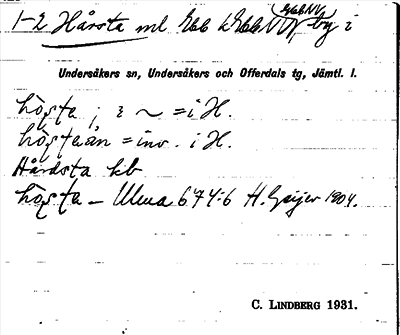 1-2 Hårsta ml Ebb k Ebb NV, by i
Undersåkers sn, Undersåkers och Offerdals tg, Jämtl. l.
högta ; i ~ = i H.
högtaån = inv. i H.
Hårdsta kb
högta – Ulma 674:6 H. Geijer 1904.
C. LINDBERG 1931.